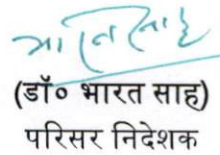 (डॉ० भारत साह)
परिसर निदेशक